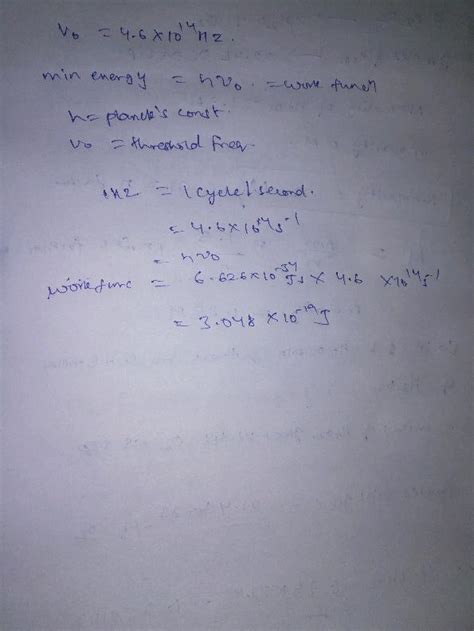 ν₀ = 4.6 × 10¹⁴ Hz.
min energy = hν₀. = work funcn
h = planck's const.
ν₀ = threshold freq.
1Hz = 1 cycle/second.
= 4.6 × 10¹⁴ s⁻¹
= hν₀
work func = 6.626 × 10⁻³⁴ Js × 4.6 × 10¹⁴ s⁻¹
= 3.048 × 10⁻¹⁹ J